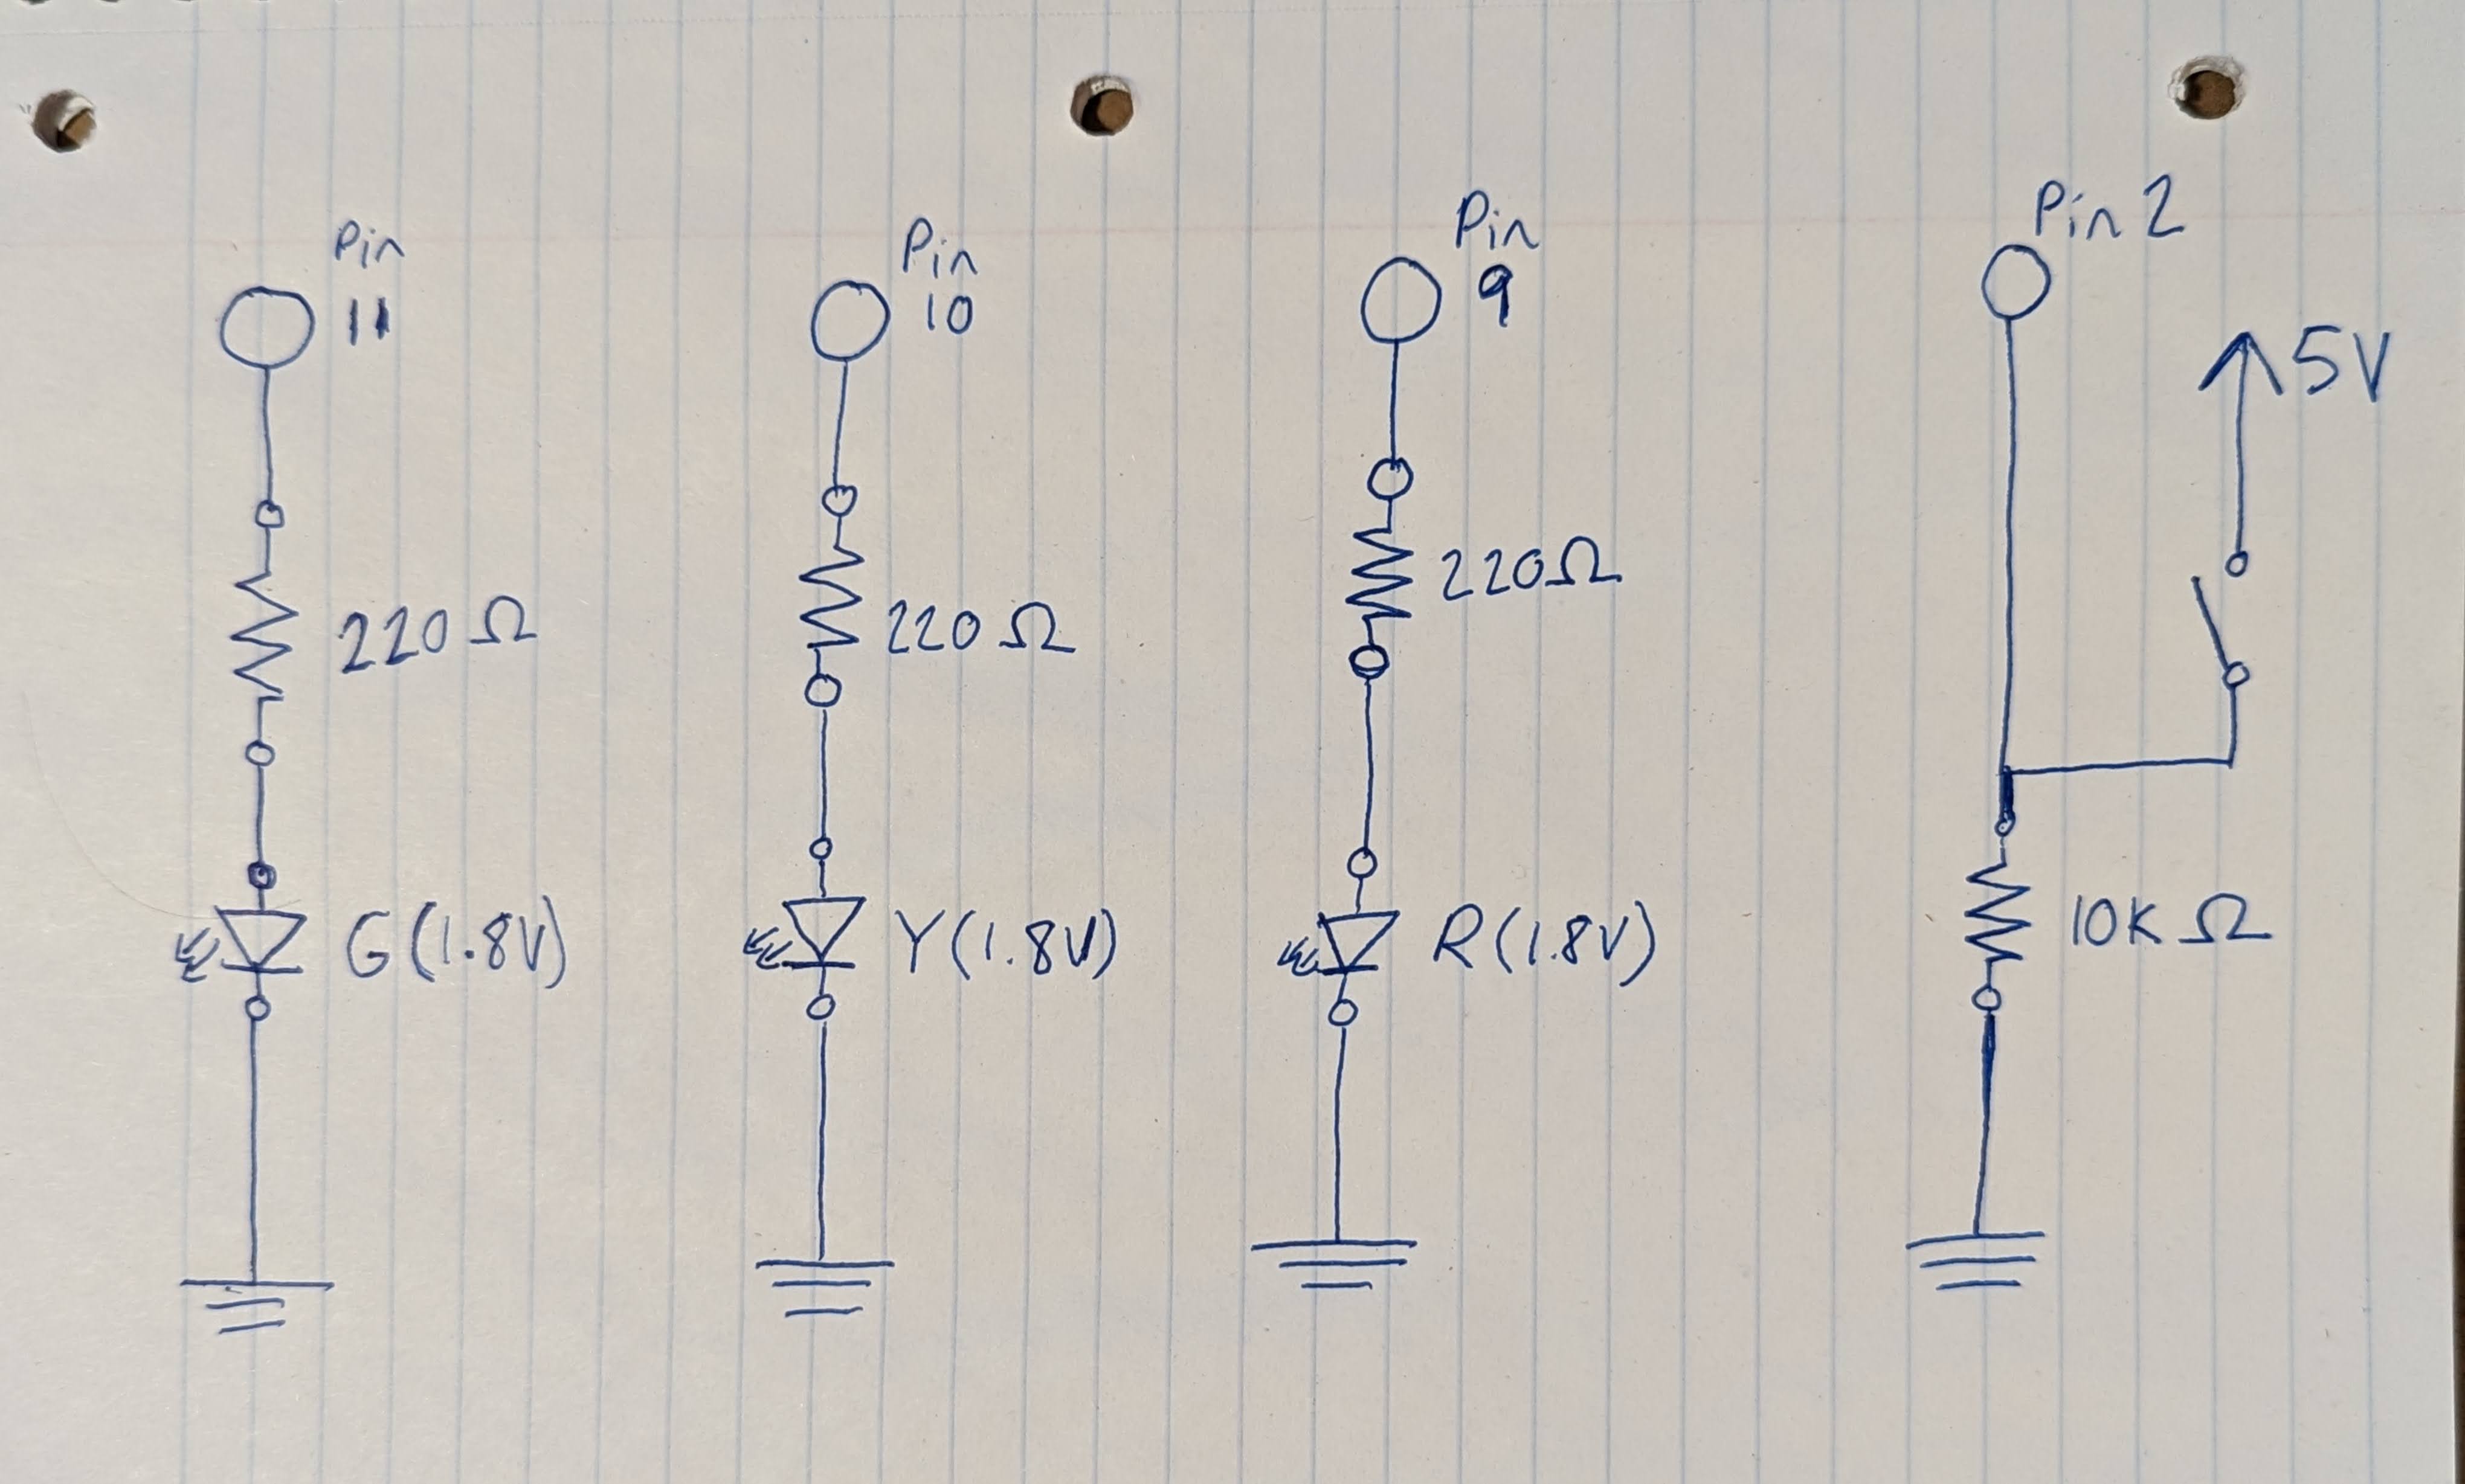 Pin
11
220 Ω
G(1.8V)
Pin
10
220 Ω
Y(1.8V)
Pin
9
220Ω
R(1.8V)
Pin 2
5V
10K Ω